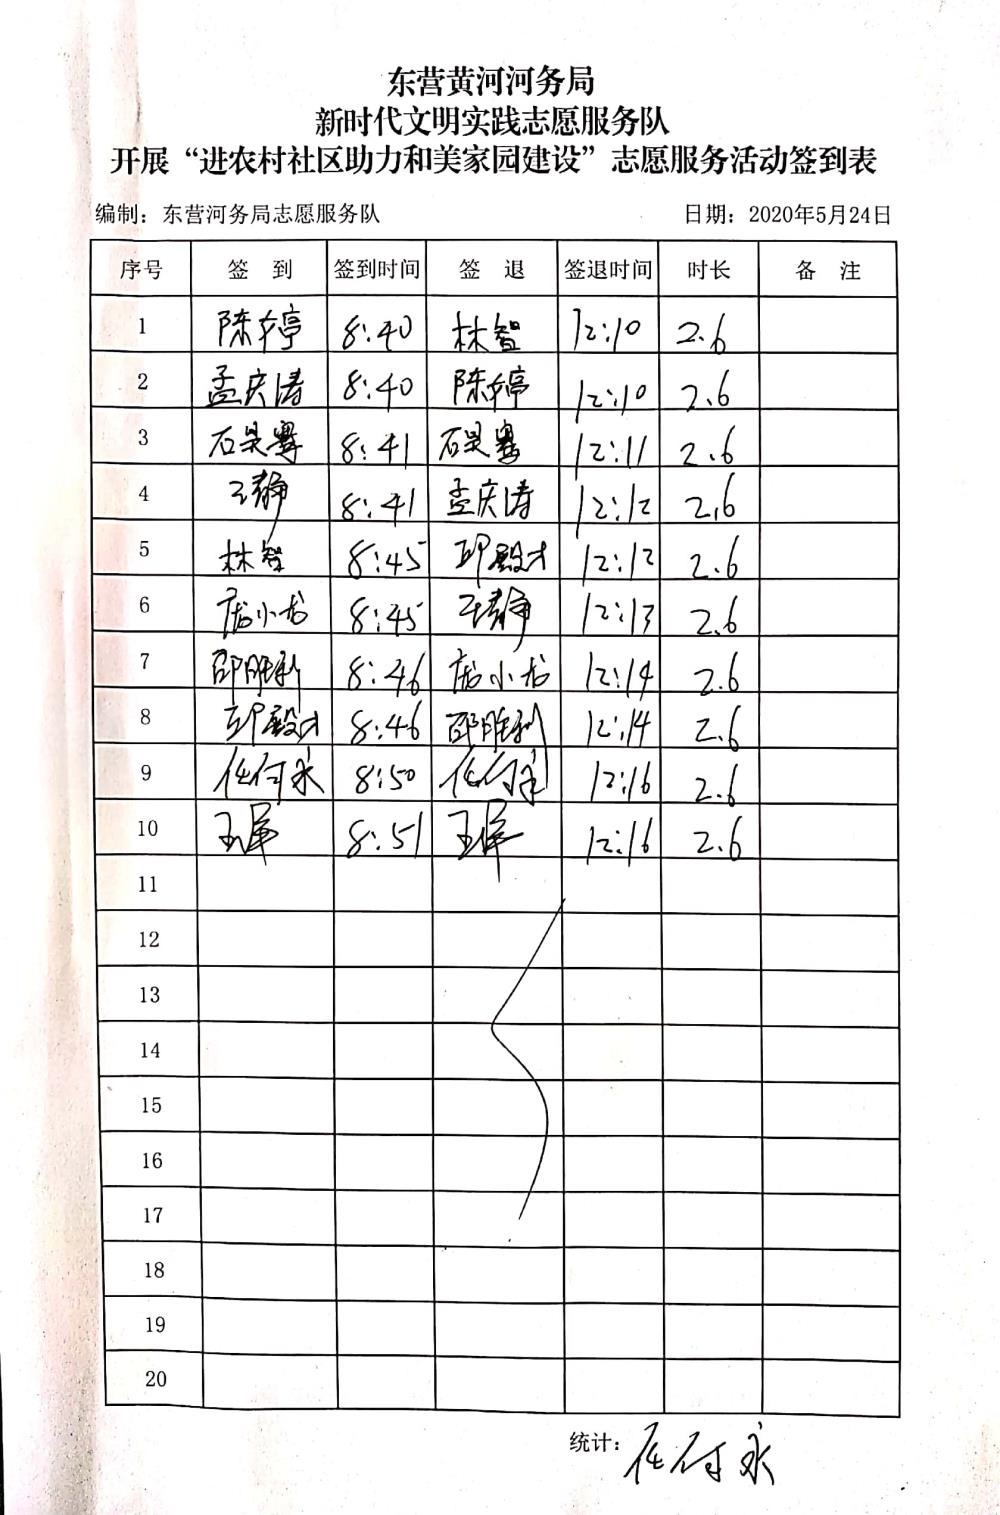 东营黄河河务局
新时代文明实践志愿服务队
开展“进农村社区助力和美家园建设”志愿服务活动签到表
编制：东营河务局志愿服务队 日期：2020年5月24日
序号 签 到 签到时间 签 退 签退时间 时长 备 注
1 陈婷 8:40 林智 12:10 2.6
2 孟庆涛 8:40 陈婷 12:10 2.6
3 8:41 12:11 2.6
4 王静 8:41 孟庆涛 12:12 2.6
5 林智 8:45 12:12 2.6
6 庞小龙 8:45 王静 12:13 2.6
7 邵胜利 8:46 庞小龙 12:14 2.6
8 8:46 邵胜利 12:14 2.6
9 8:50 12:16 2.6
10 王军 8:51 王军 12:16 2.6
11
12
13
14
15
16
17
18
19
20
统计：